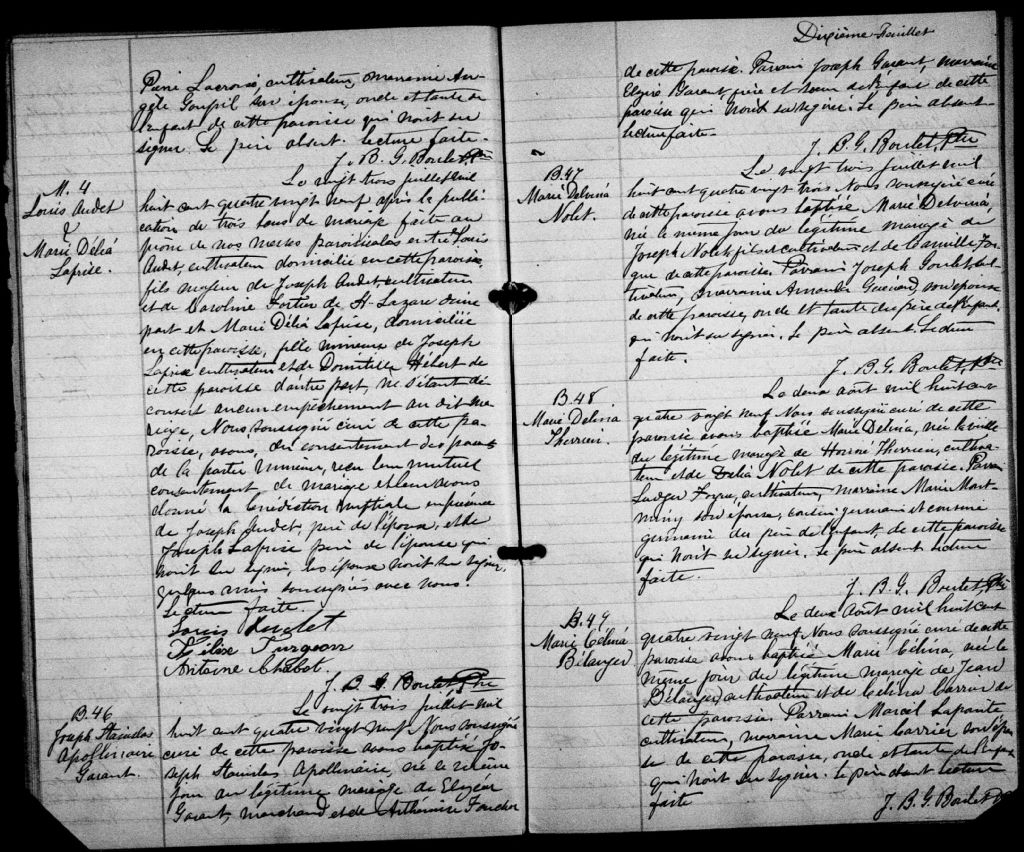 Pierre Lacroix, cultivateur, marraine An-
gèle Goupil son épouse, oncle et tante de
l'enfant de cette paroisse qui n'ont su
signer. Le père absent. Lecture faite.
J. B. G. Boulet, Ptre
M. 4
Louis Audet
&
Marie Déliá
Laprise.
Le vingt trois juillet mil
huit cent quatre vingt neuf après la publi-
cation de trois bans de mariage faite au
prône de nos messes paroissiales entre Louis
Audet, cultivateur domicilié en cette paroisse,
fils majeur de Joseph Audet cultivateur
et de Caroline Fortier de St Lazare d'une
part et Marie Déliá Laprise, domiciliée
en cette paroisse, fille mineure de Joseph
Laprise cultivateur et de Domitille Hébert de
cette paroisse d'autre part, ne s'étant dé-
couvert aucun empêchement au dit ma-
riage, Nous, soussigné curé de cette pa-
roisse, avons, du consentement des parents
de la partie mineure, reçu leur mutuel
consentement de mariage et leur avons
donné la bénédiction nuptiale en présence
de Joseph Audet, père de l'époux, et de
Joseph Laprise père de l'épouse qui
n'ont su signer, les épouse n'ont su signer,
quelques amis soussignés avec nous.
Lecture faite.
Louis Audet
Félix Turgeon
Antoine Chabot
J. B. G. Boulet, Ptre
B. 46
Joseph Stanislas
Apollinaire
Garant.
Le vingt trois juillet mil
huit cent quatre vingt neuf Nous soussigné
curé de cette paroisse avons baptisé Jo-
seph Stanislas Apollinaire, né le même
jour du légitime mariage de Elzéar
Garant, marchand et de Arthémise Faucher
Dixième Feuillet
de cette paroisse. Parrain Joseph Garant, marraine
Elzire Garant, frère et sœur de l'enfant de cette
paroisse qui n'ont su signer. Le père absent
Lecture faite.
J. B. G. Boulet, Ptre
B. 47
Marie Delvina
Nolet.
Le vingt trois juillet mil
huit cent quatre vingt trois Nous soussigné curé
de cette paroisse avons baptisé Marie Delvina,
née le même jour du légitime mariage de
Joseph Nolet fils cultivateur et de Camille
de cette paroisse. Parrain Joseph cul-
tivateur, marraine Amanda son épouse
de cette paroisse, oncle et tante du père de l'enfant,
qui n'ont su signer. Le père absent. Lecture
faite.
J. B. G. Boulet, Ptre
B. 48
Marie Delina
Therrien.
Le deux août mil huit cent
quatre vingt neuf Nous soussigné curé de cette
paroisse avons baptisé Marie Delina, née la veille
du légitime mariage de Honoré Therrien, cultiva-
teur et de Délia Nolet de cette paroisse. Parrain
Ludger cultivateur, marraine Marie Mont-
miny son épouse, cousin germain et cousine
germaine du père de l'enfant, de cette paroisse
qui n'ont su signer. Le père absent Lecture
faite.
J. B. G. Boulet, Ptre
B. 49
Marie Céliná
Bélanger
Le deux Août mil huit cent
quatre vingt neuf Nous soussigné curé de cette
paroisse avons baptisé Marie Célina, née le
même jour du légitime mariage de Jean
Bélanger, cultivateur et de Célina Carrier de
cette paroisse. Parrain Marcel Lapointe
cultivateur, marraine Marie Carrier son épou-
se de cette paroisse, oncle et tante de l'enfant
qui n'ont su signer. Le père absent Lecture
faite
J. B. G. Boulet Ptre